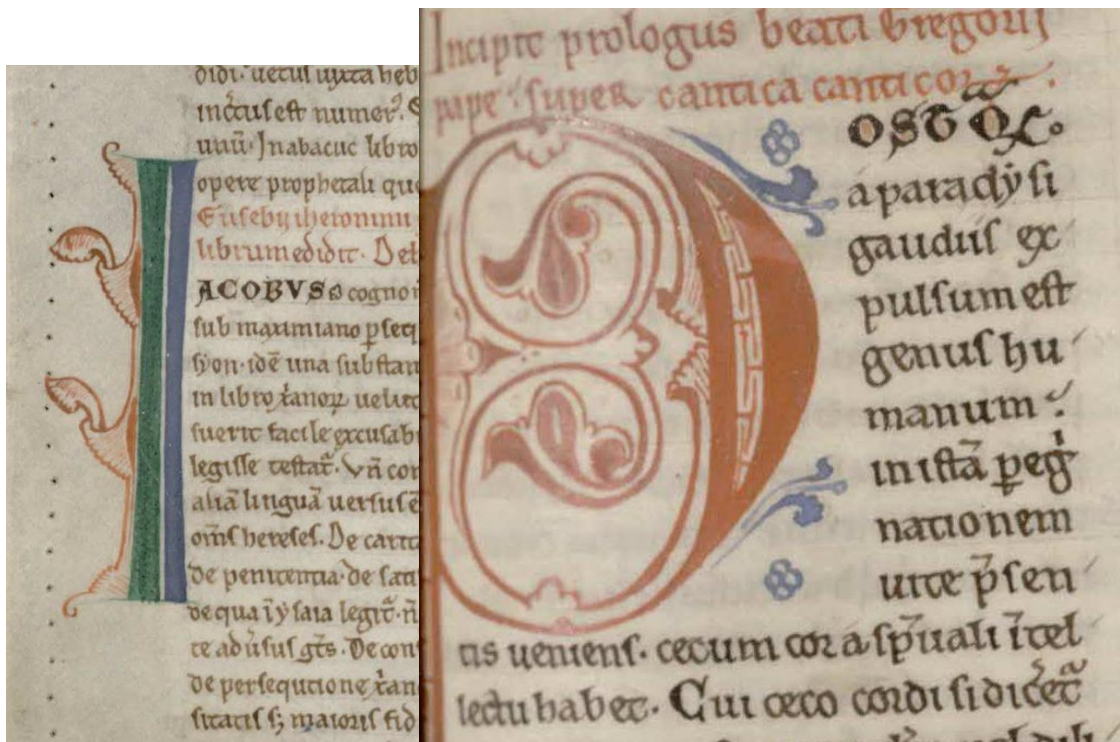 didi. uetus iuxta heb
inc̄tus est numerꝰ.
unū. In abacuc libro
opere prophetali que
Eusebij iheronimi
librum edidit. De
I ACOBVS cognom
sub maximiano ꝑseq
syon. idē una substan
in libro x̄anoꝝ uelut
fuerit facile excusab
legisse testat̄. Vn̄ con
aliā linguā uersus e
om̄s hereses. De
de penitentia. de
de qua ī ysaia legit̄. n̄
te adūsus
de persequtione x̄an
sitatis maioris fid
Incipit prologus beati Gregorij
pape. super cantica canticoꝝ.
P OSTQ̄
a paradẏsi
gaudiis ex
pulsum est
genus hu
manum.
in istā ꝑegͥ
nationem
uite p̄sen
tis ueniens. cecum cor a sp̄uali ītel
lectu habet. Cui ceco cordi si dicēt̄